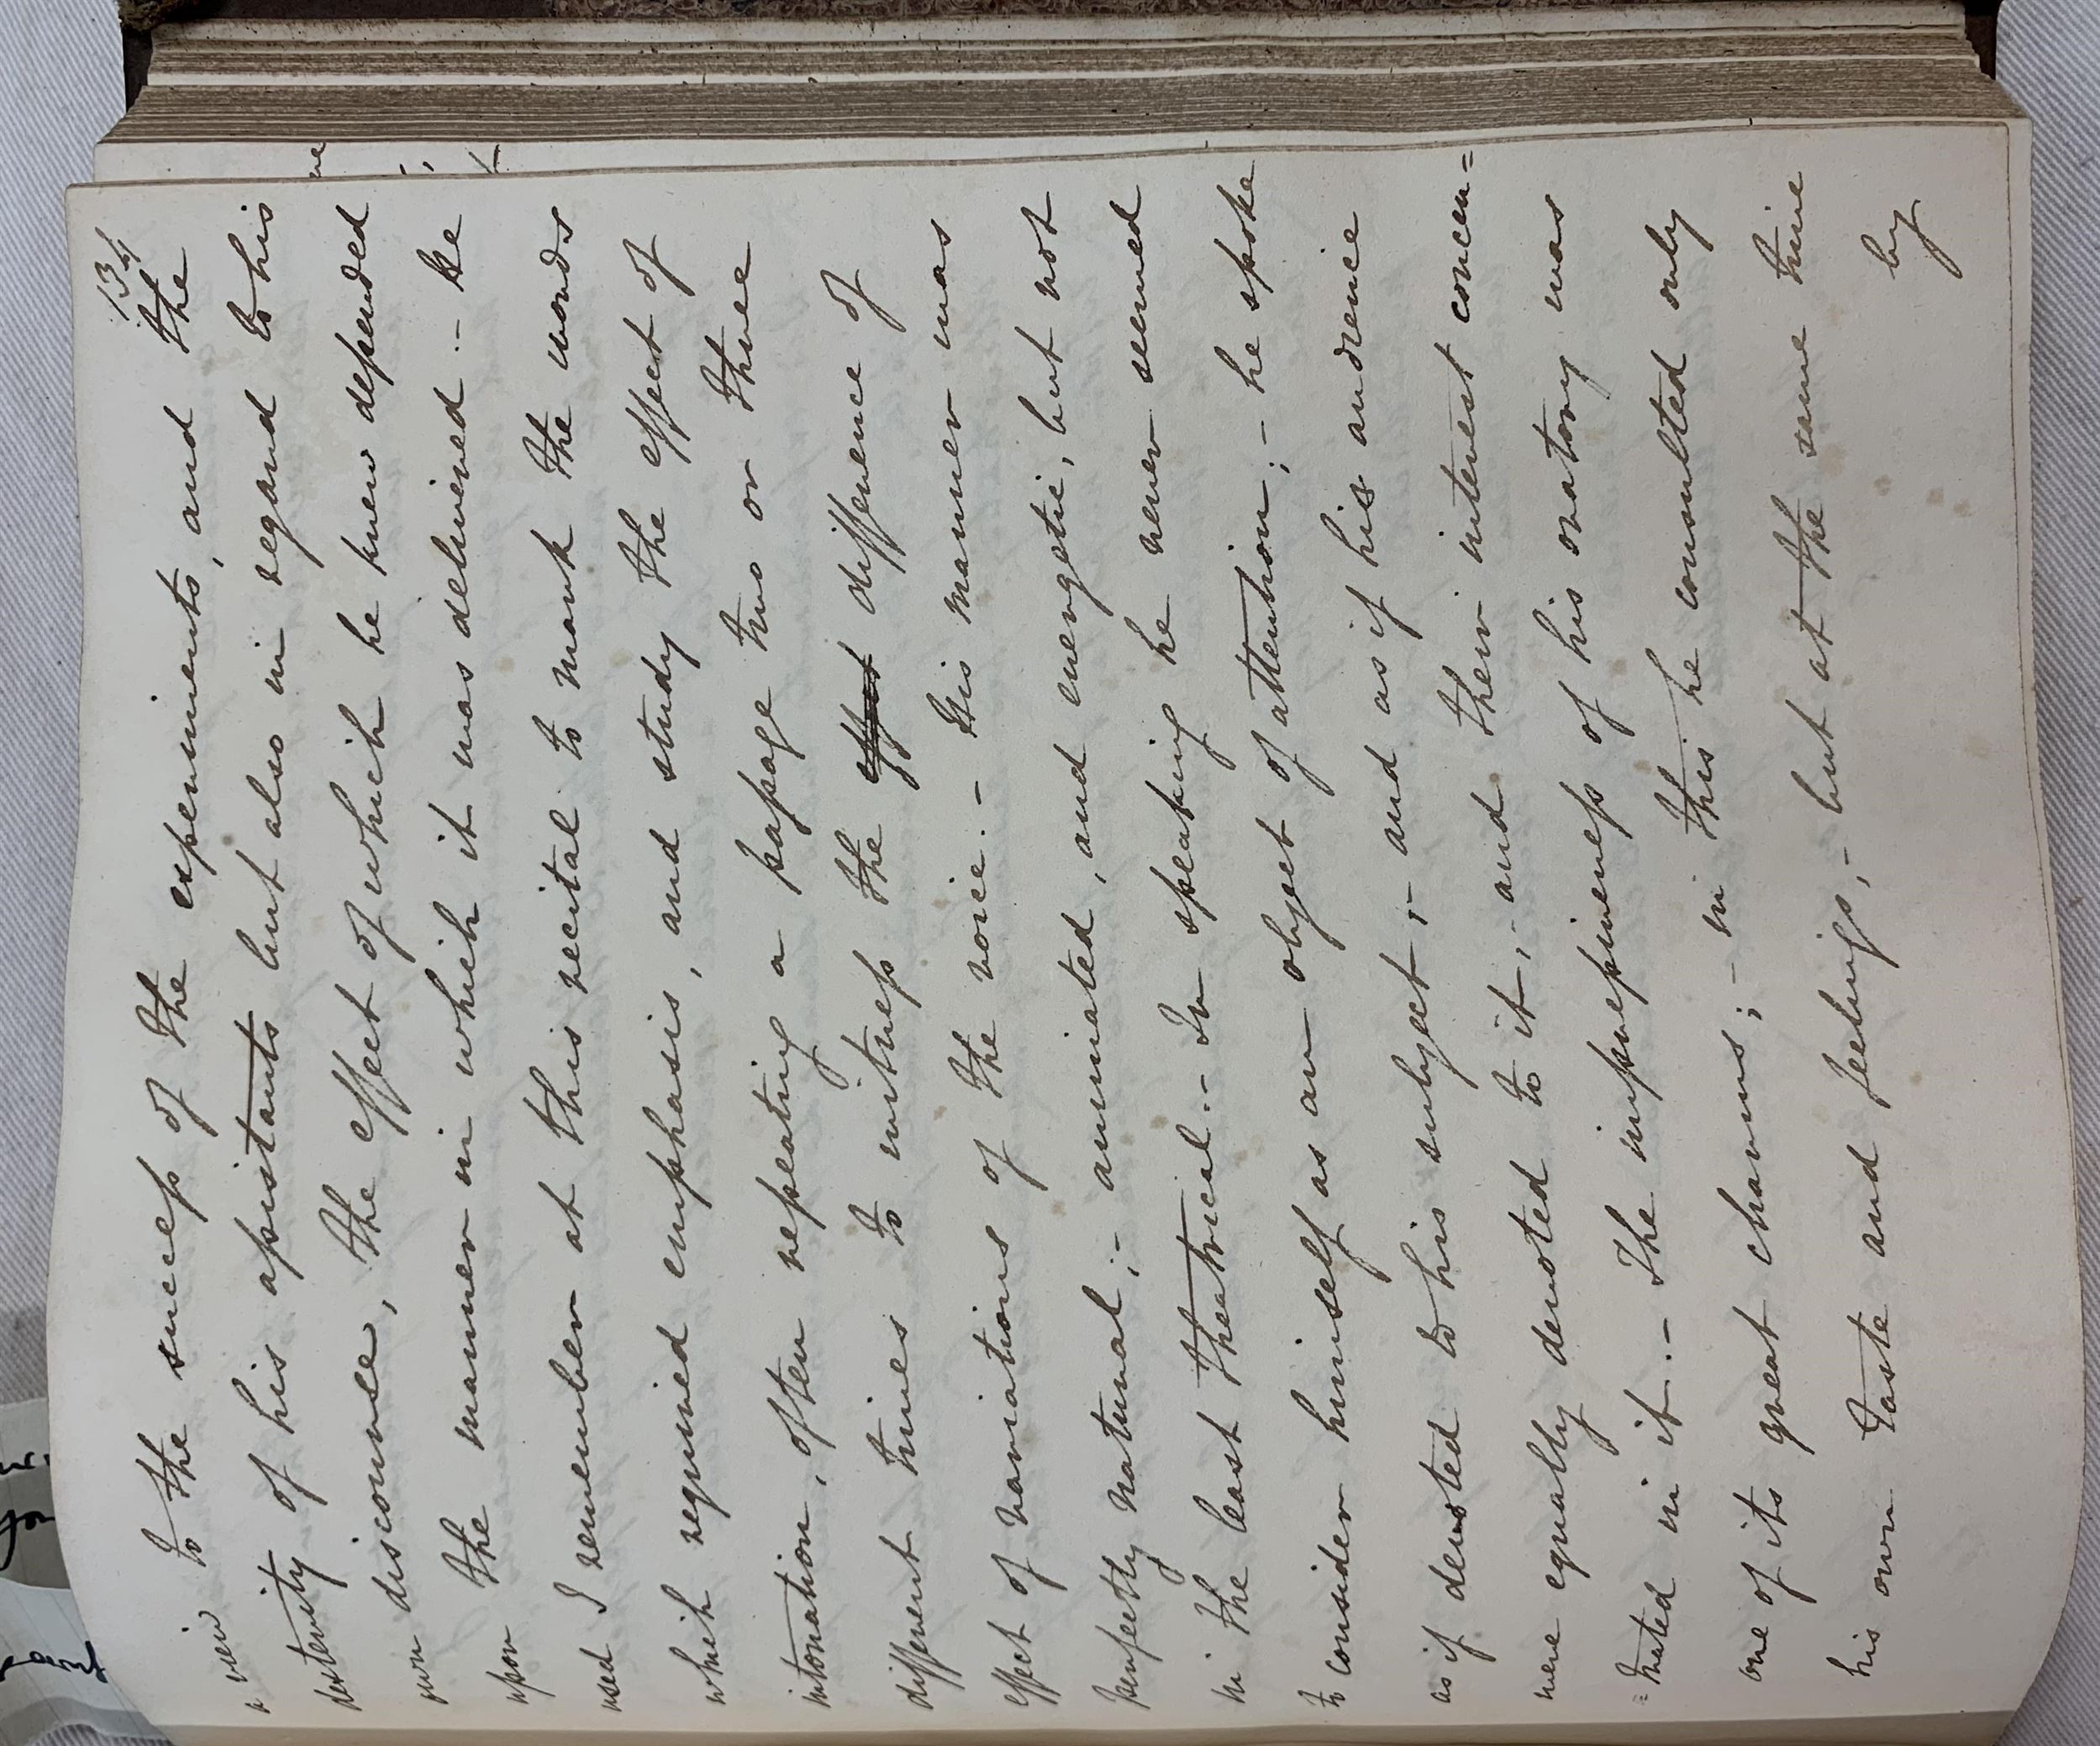 134
a view to the success of the experiments, and the
dexterity of his assistants but also in regard to his
own discourse, the effect of which he knew depended
upon the manner in which it was delivered. - he
used I remember at this recital to mark the words
which required emphasis, and study the effect of
intonation, often repeating a passage two or three
different times to witness the effect difference of
effect of variations of the voice. - His manner was
perfectly natural; - animated, and energetic, but not
in the least theatrical. - In speaking he never seemed
to consider himself as an object of attention; - he spoke
as if devoted to his subject; - and as if his audience
were equally devoted to it, - and their interest concen=
=trated in it. - The impressiveness of his oratory was
one of its great charms; - in this he consulted only
his own taste and feelings, - but at the same time
by